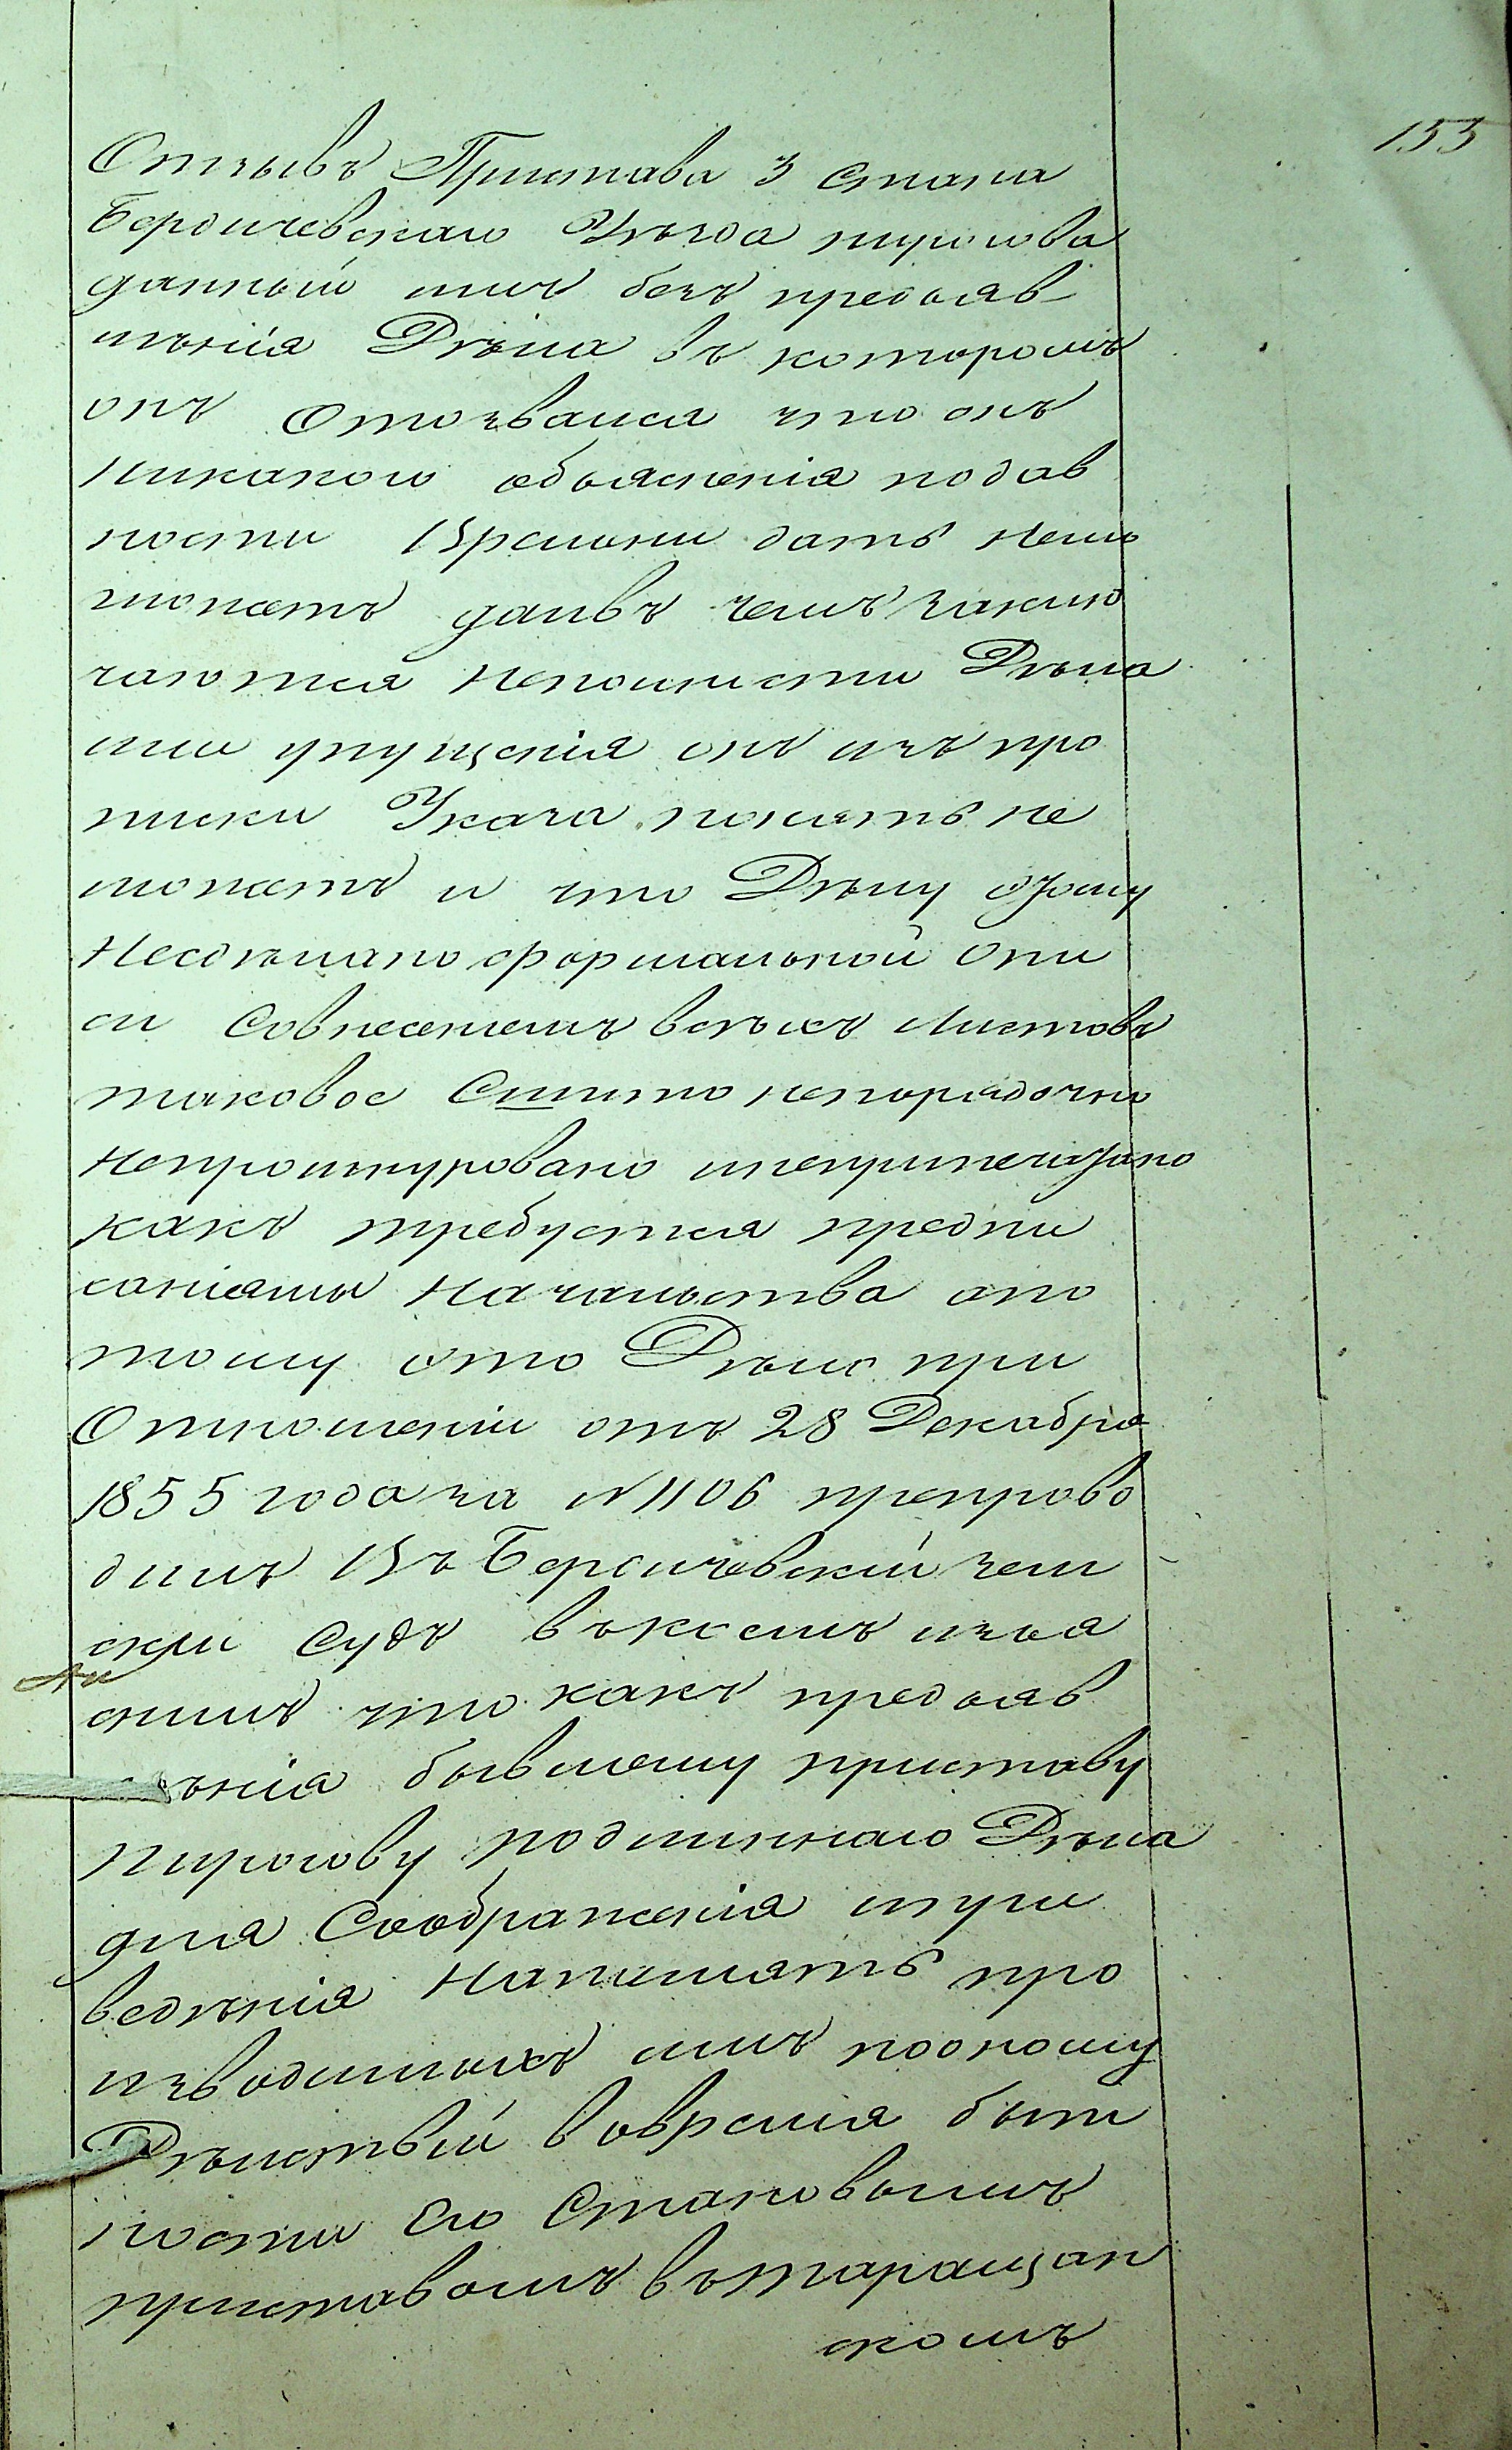 153
Отзывъ Пристава 3 стана
Бердичевскаго Уѣзда пирогова
данный имъ безъ предъяв
лѣнія Дѣла въ которомъ
онъ Отозвался что онъ
никакого объясненія подав
ности Времени дать немо
можетъ даивъ чемъ заклю
чаются неполности Дѣла
или упущенія онъ изъ про
писки Указа понять не
можетъ и что Дѣлу этому
Несдѣлано формальной Опи
си Совнесенiемъ всѣхъ Листовъ
таковое Сшито непорядочно
Непрошнуровано инеприпечатано
какъ требуется предпи
саніями Начальства апо
тому это Дѣло при
Отношеніи отъ 28 Декабря
1855 года за №1106 препрово
дилъ Въ Бердичевскій зем
скій Судъ въкоемъ изъя
снилъ что какъ предъяв
лѣнія бывшему приставу
пирогову подлиннаго Дѣла
для Соображенія ипри
ведѣнія Напамять про
изводимыхъ имъ поономy
Дѣйствій вовремя быт
ности Его Становымъ
приставомъ вътаращан
скомъ